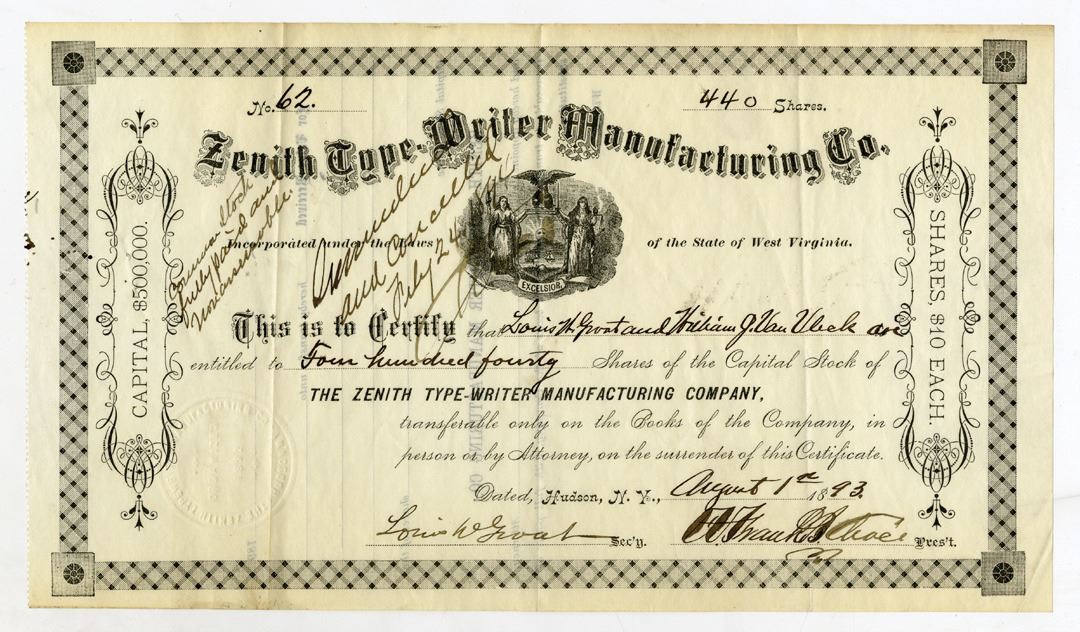 No. 62.
440 Shares.
Zenith Type-Writer Manufacturing Co.
Common Stock
fully paid and
nonassessable.
and Cancelled
July 24
Incorporated under the Laws of the State of West Virginia.
EXCELSIOR.
CAPITAL, $500,000.
SHARES, $10 EACH.
This is to Certify that Louis W Groat and William J. Van Vleck are
entitled to Four hundred fourty Shares of the Capital Stock of
THE ZENITH TYPE-WRITER MANUFACTURING COMPANY,
transferable only on the Books of the Company, in
person or by Attorney, on the surrender of this Certificate.
Dated, Hudson, N. Y., August 1st 1893.
Louis W Groat Sec'y.
Frank B Choice Pres't.